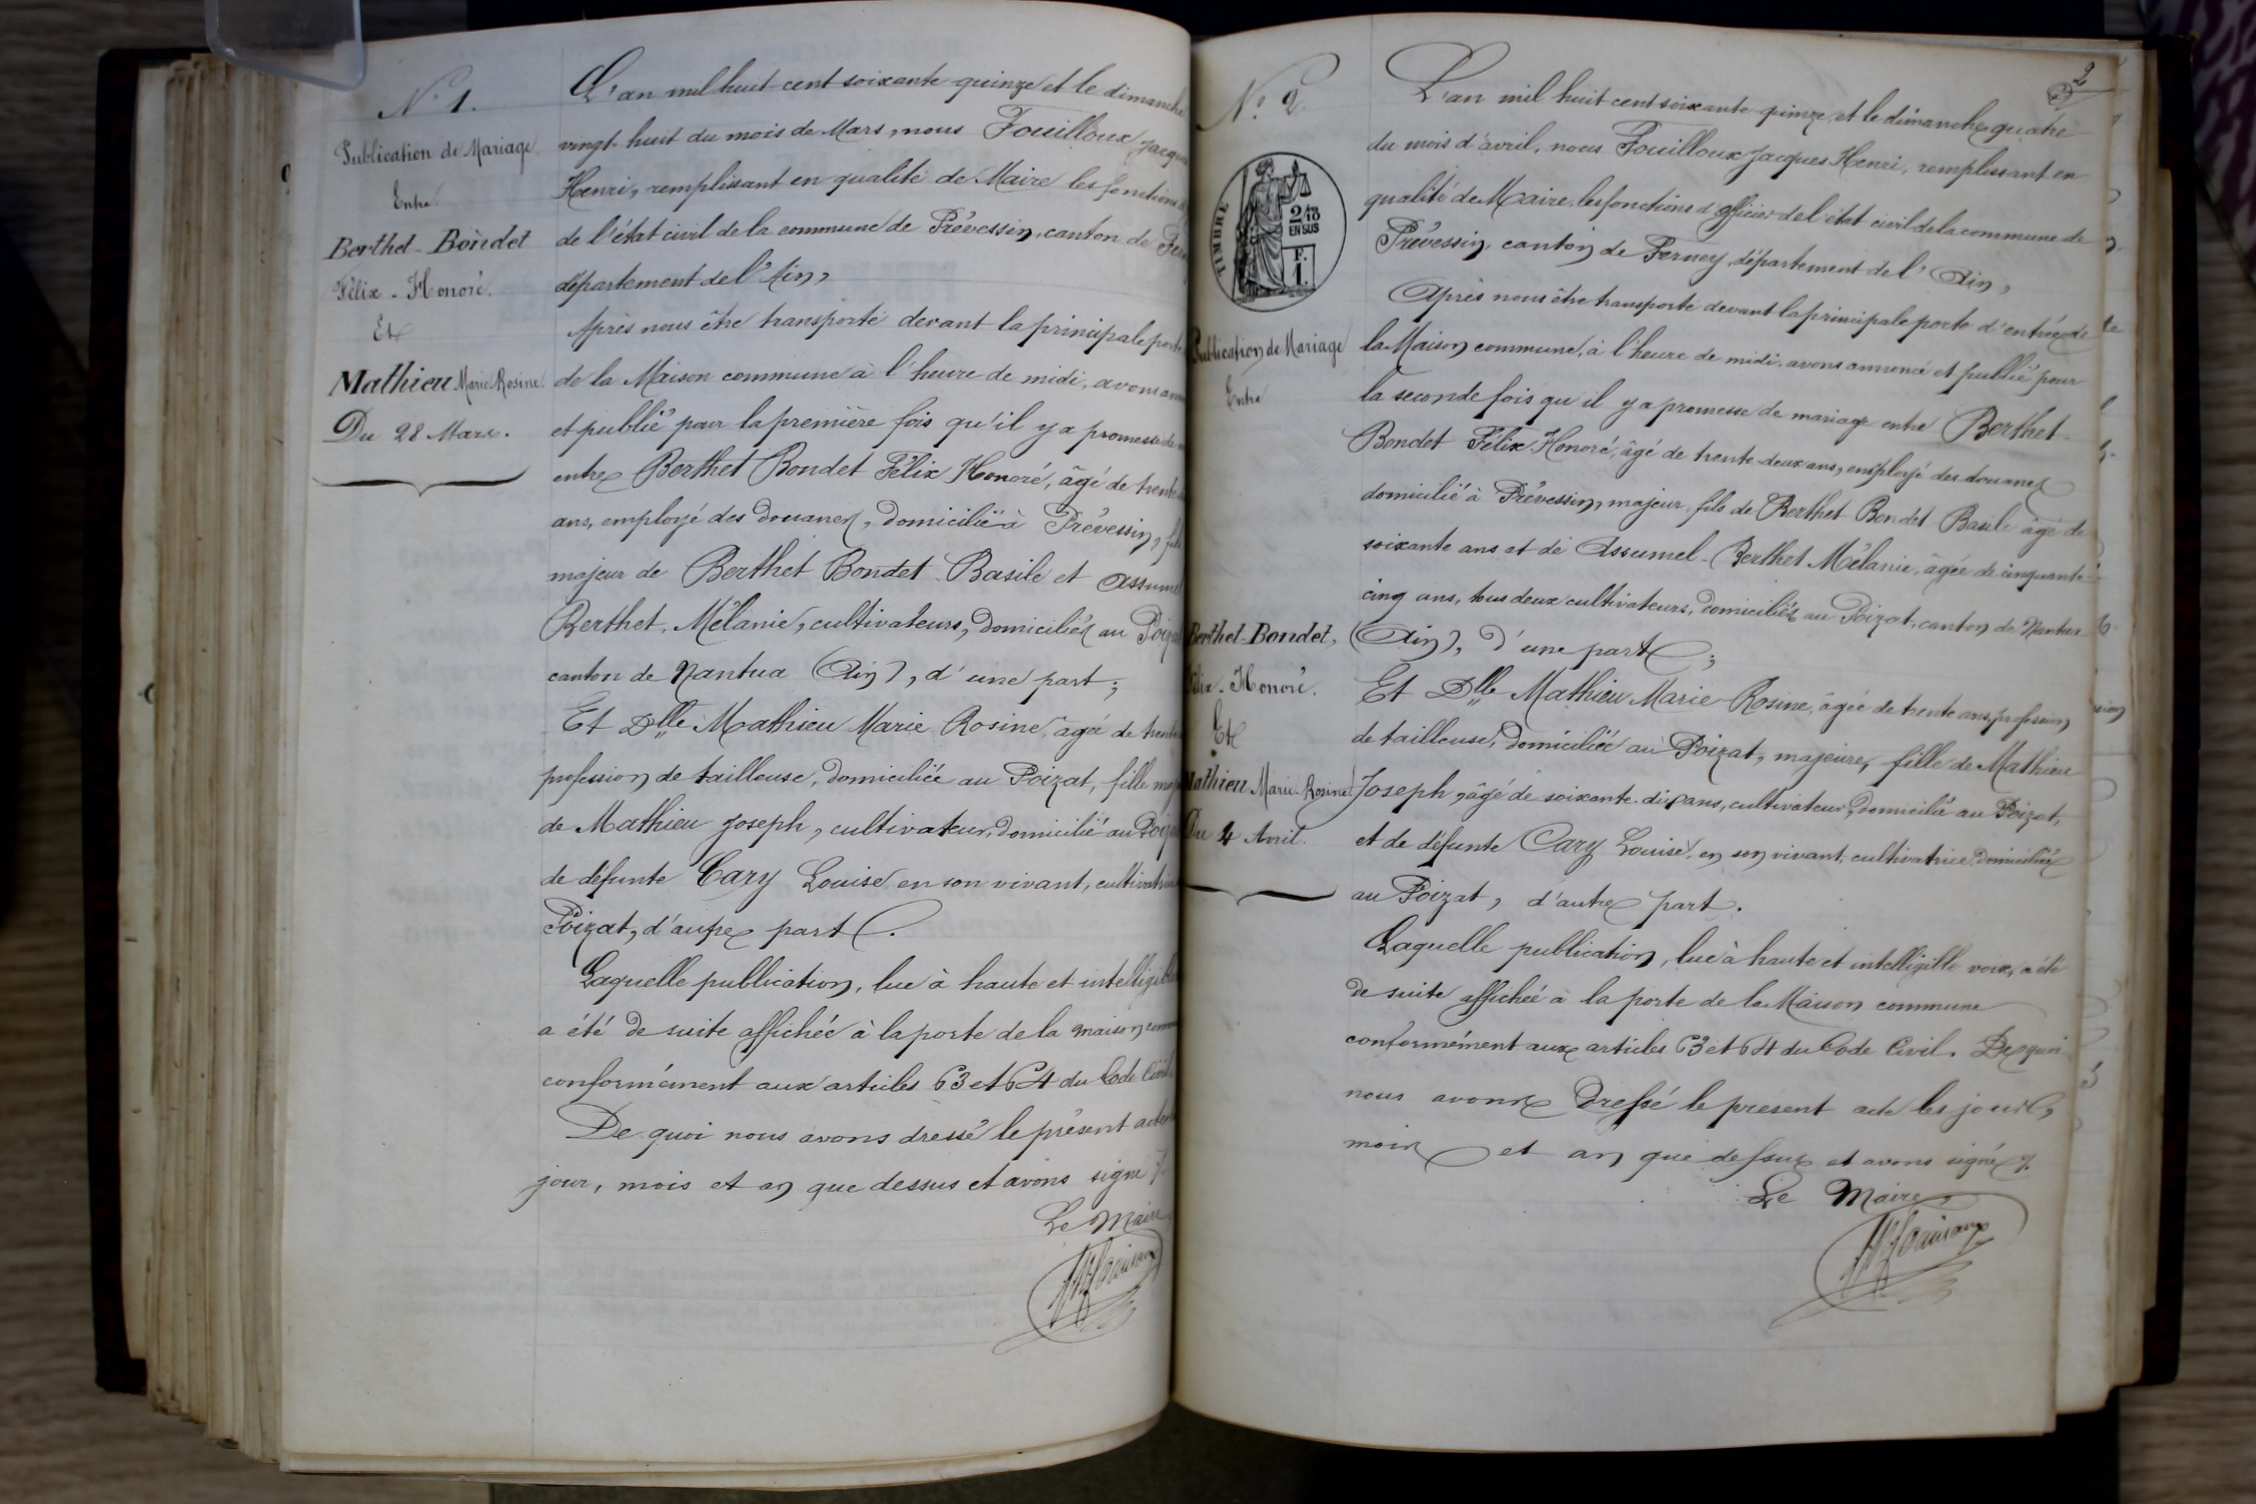 N° 1.
Publication de Mariage
Entre
Berthet-Bondet
Félix-Honoré.
Et
Mathieu Marie Rosine
Du 28 Mars.
L'an mil huit cent soixante quinze et le dimanche
vingt-huit du mois de Mars, nous Fouilloux
Henri, remplissant en qualité de Maire les fonctions
de l'état civil de la commune de Prévessin, canton de
département de l'Ain,
Après nous être transporté devant la principale porte
de la Maison commune à l'heure de midi, avons
et publié pour la première fois qu'il y a promesse de
entre Berthet Bondet Félix Honoré, âgé de trente
ans, employé des douanes, domicilié à Prévessin, fils
majeur de Berthet Bondet Basile et Assumel
Berthet, Mélanie, cultivateurs, domiciliés au
canton de Nantua (Ain), d'une part;
Et Dlle Mathieu Marie Rosine, âgée de trente
profession de tailleuse, domiciliée au Poizat, fille
de Mathieu Joseph, cultivateur, domicilié au
de défunte Cary Louise en son vivant, cultivatrice
Poizat, d'autre part.
Laquelle publication, lue à haute et intelligible
a été de suite affichée à la porte de la maison
conformément aux articles 63 et 64 du Code Civil
De quoi nous avons dressé le présent acte
jour, mois et an que dessus et avons signé
Le Maire
2
N° 2.
TIMBRE
2/10
EN SUS
F.
1.
Publication de Mariage
Entre
Berthet-Bondet,
Félix-Honoré.
Et
Mathieu Marie-Rosine
Du 4 Avril.
L'an mil huit cent soixante quinze et le dimanche quatre
du mois d'avril, nous Fouilloux Jacques Henri, remplissant en
qualité de Maire, les fonctions d'officier de l'état civil de la commune de
Prévessin, canton de Ferney, département de l'Ain,
Après nous être transporté devant la principale porte d'entrée de
la Maison commune, à l'heure de midi, avons annoncé et publié pour
la seconde fois qu'il y a promesse de mariage entre Berthet-
Bondet Félix Honoré, âgé de trente-deux ans, employé des douanes
domicilié à Prévessin, majeur, fils de Berthet-Bondet Basile âgé de
soixante ans et de Assumel-Berthet Mélanie, âgée de cinquante-
cinq ans, tous deux cultivateurs, domiciliés au Poizat, canton de Nantua
(Ain), d'une part;
Et Dlle Mathieu Marie-Rosine, âgée de trente ans, profession
de tailleuse, domiciliée au Poizat, majeure, fille de Mathieu
Joseph, âgé de soixante-dix ans, cultivateur, domicilié au Poizat,
et de défunte Cary Louise, en son vivant, cultivatrice, domiciliée
au Poizat, d'autre part.
Laquelle publication, lue à haute et intelligible voix, a été
de suite affichée à la porte de la Maison commune
conformément aux articles 63 et 64 du Code Civil. De quoi
nous avons dressé le présent acte les jour,
mois et an que dessus et avons signé
Le Maire,